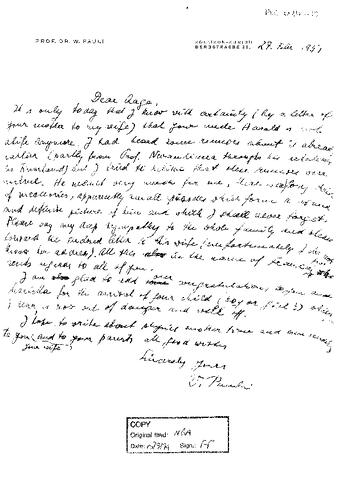 PROF. DR. W. PAULI
BERGSTRASSE 35,
Dear Aage,
It is only today that I know with certainty (by a letter of
your mother to my wife) that your uncle Harald is not
alive anymore. I had heard some rumours about it already
earlier (partly from Prof. Nevanlinna through his relatives
in Finland) but I tried to believe that these rumours were
wrong. He meant very much for me,
of memories, apparently small episodes which form a
and definite picture of him and which I shall never forget.
Please say my deep sympathy to the whole family and please
forward the enclosed letter to his wife (unfortunately I do not
know her address). All this also in the name of Franca, who
sends regards to all of you.
I am glad to add our congratulations, to you and
Marietta for the arrival of your child (boy or girl?) which
I hear is now out of danger and well off.
I hope to write about physics another time and
to you and to your parents all good wishes
your wife
Sincerely yours
W. Pauli
COPY
Original filed: NBA
Date: Sign.: